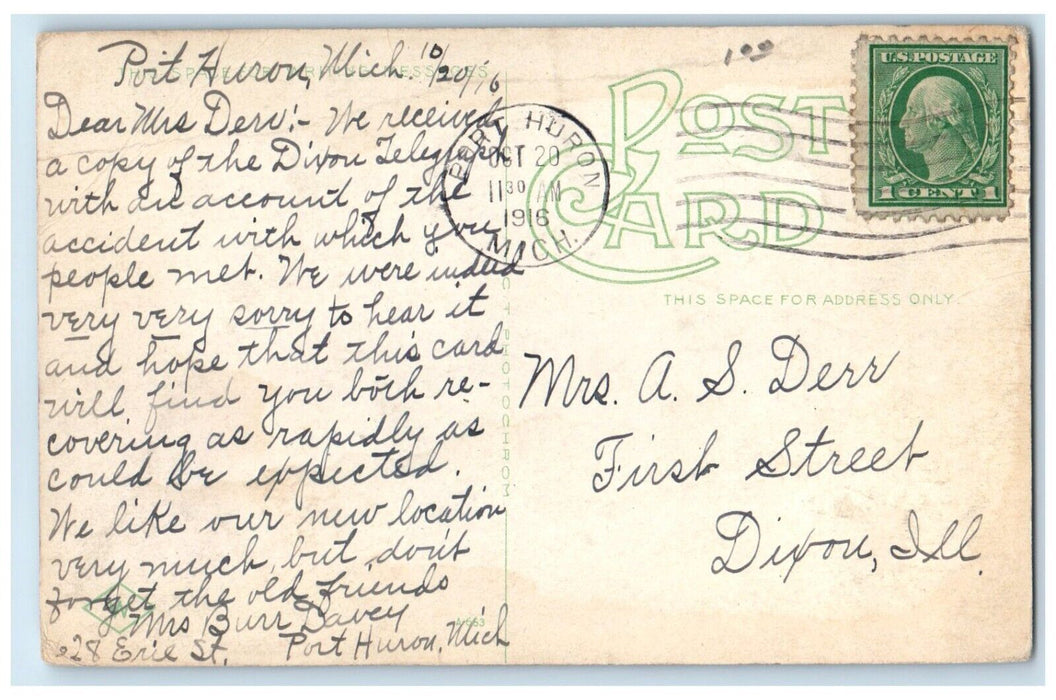 Port Huron, Mich 10/20/16
Dear Mrs Derr:- We received
a copy of the Dixon Telegraph
with an account of the
accident with which you
people met. We were indeed
very very sorry to hear it
and hope that this card
will find you both re-
covering as rapidly as
could be expected.
We like our new location
very much, but don't
forget the old friends
Mrs Burr Davey
28 Erie St. Port Huron, Mich
PORT HURON
OCT 20
11 30 AM
1916
MICH.
1.00
U.S. POSTAGE
1 CENT 1
POST
CARD
THIS SPACE FOR ADDRESS ONLY.
Mrs. A. S. Derr
First Street
Dixon, Ill.
PHOTOCHROM
A-663